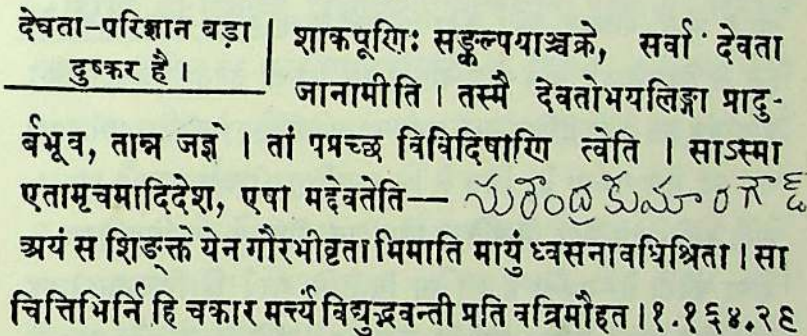 देवता-परिज्ञान बड़ा
दुष्कर है ।
शाकपूणिः सङ्कल्पयाञ्चक्रे, सर्वा देवता
जानामीति । तस्मै देवतोभयलिङ्गा प्रादु-
र्बभूव, तान्न जज्ञे । तां पप्रच्छ विविदिषाणि त्वेति । साऽस्मा
एतामृचमादिदेश, एषा मद्देवतेति—
अयं स शिङ्क्ते येन गौरभीवृता मिमाति मायुं ध्वसनावधिश्रिता । सा
चित्तिभिर्नि हि चकार मर्त्त्यं विद्युद्भवन्ती प्रति वव्रिमौहत ।१.१६४.२९